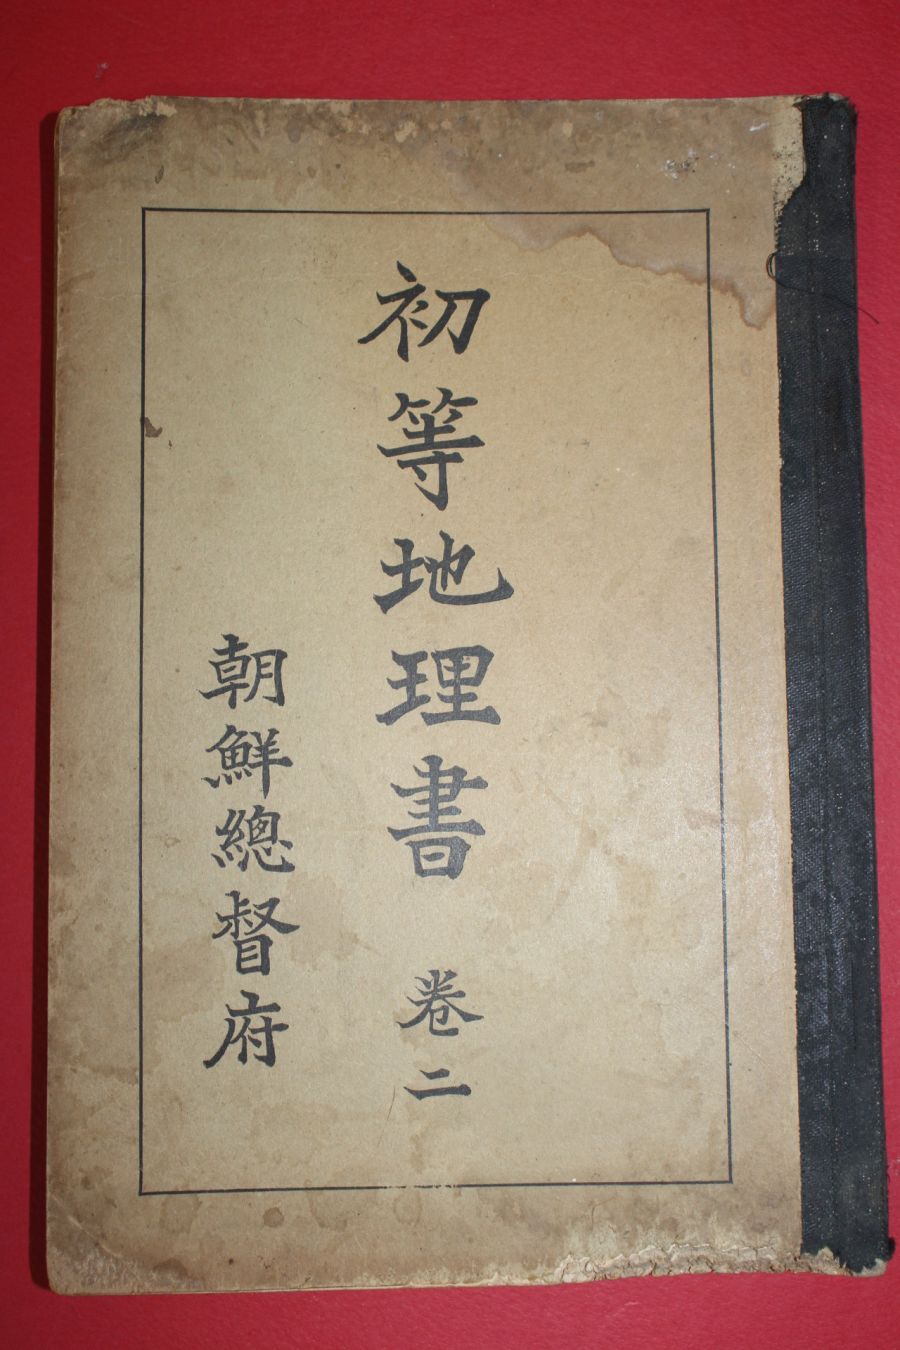 初等地理書 卷二
朝鮮總督府